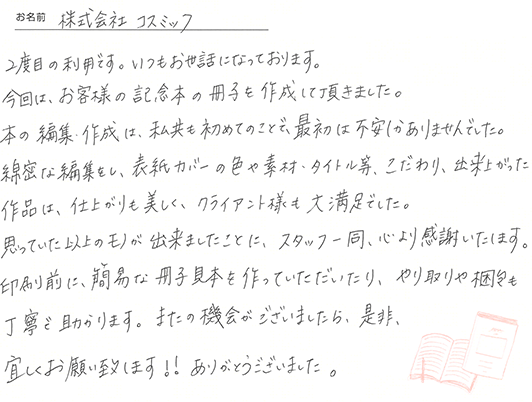 お名前 株式会社 コスミック
2度目の利用です。いつもお世話になっております。
今回は、お客様の記念本の冊子を作成して頂きました。
本の編集・作成は、私共も初めてのことで、最初は不安しかありませんでした。
綿密な編集をし、表紙カバーの色や素材・タイトル等、こだわり、出来上がった
作品は、仕上がりも美しく、クライアント様も大満足でした。
思っていた以上のモノが出来ましたことに、スタッフ一同、心より感謝いたします。
印刷前に、簡易な冊子見本を作っていただいたり、やり取りや梱包も
丁寧で助かります。またの機会がございましたら、是非、
宜しくお願い致します!! ありがとうございました。